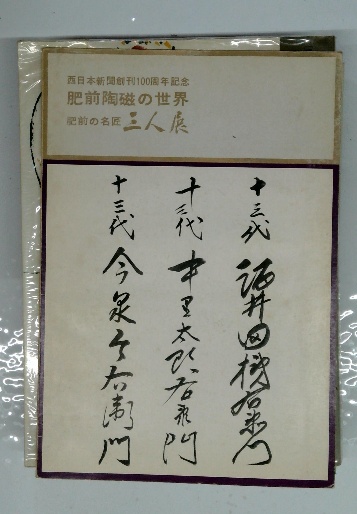 西日本新聞創刊100周年記念
肥前陶磁の世界
肥前の名匠 三人展
十三代 酒井田柿右衛門
十三代 中里太郎右衛門
十三代 今泉今右衛門